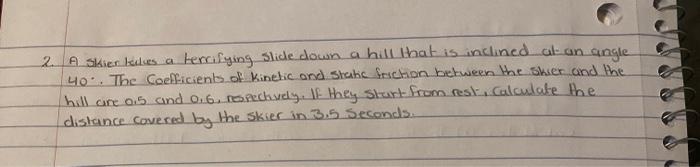 2. A skier takes a terrifying slide down a hill that is inclined at an angle
40°. The Coefficients of kinetic and static friction between the skier and the
hill are 0.5 and 0.6, respectively. If they start from rest, calculate the
distance covered by the skier in 3.5 seconds.